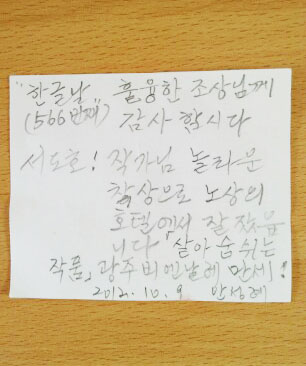 "한글날" 훌륭한 조상님께
(566번째) 감사 합시다
서도호! 작가님 놀라운
착상으로 노상의
호텔에서 잘 잤읍
니다 "살아 숨쉬는
작품" 광주비엔날레 만세!
2012. 10. 9